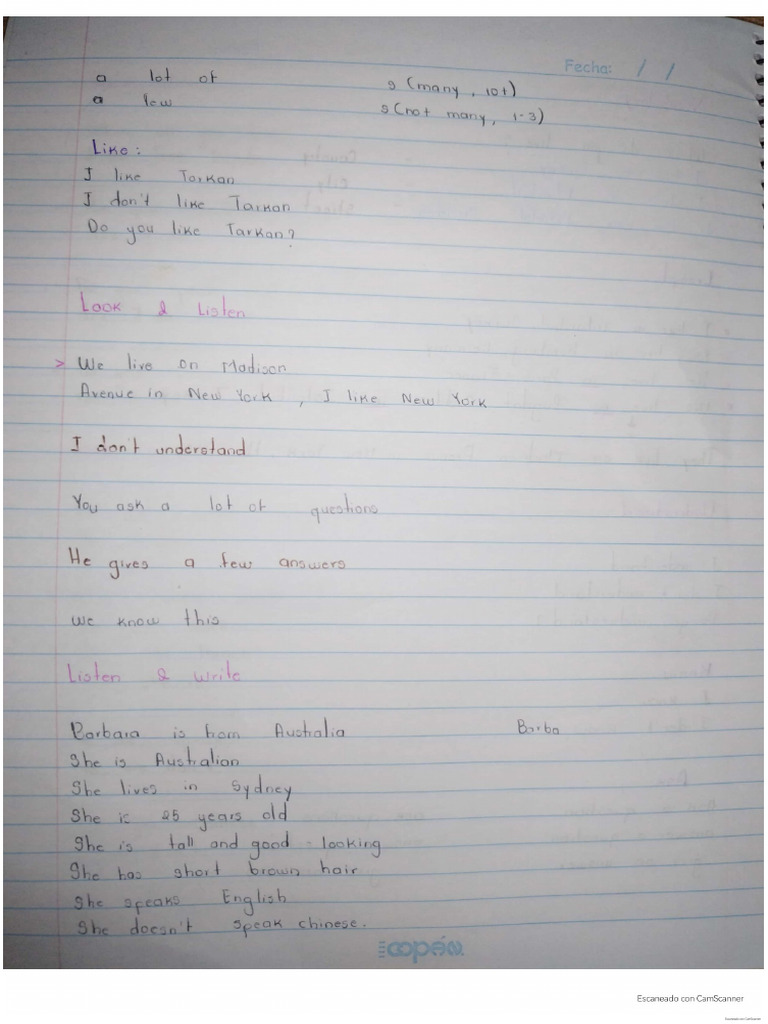 Fecha: / /
a lot of s (many, 10+)
a few s (not many, 1-3)
Like:
I like Tarkan
I don't like Tarkan
Do you like Tarkan?
Look & Listen
> We live on Madison
Avenue in New York, I like New York
I don't understand
You ask a lot of questions
He gives a few answers
we know this
Listen & write
Barbara is born Australia Barba
She is Australian
She lives in Sydney
She is 25 years old
She is tall and good-looking
She has short brown hair
She speaks English
She doesn't speak chinese.
Escaneado con CamScanner
Escaneado con CamScanner